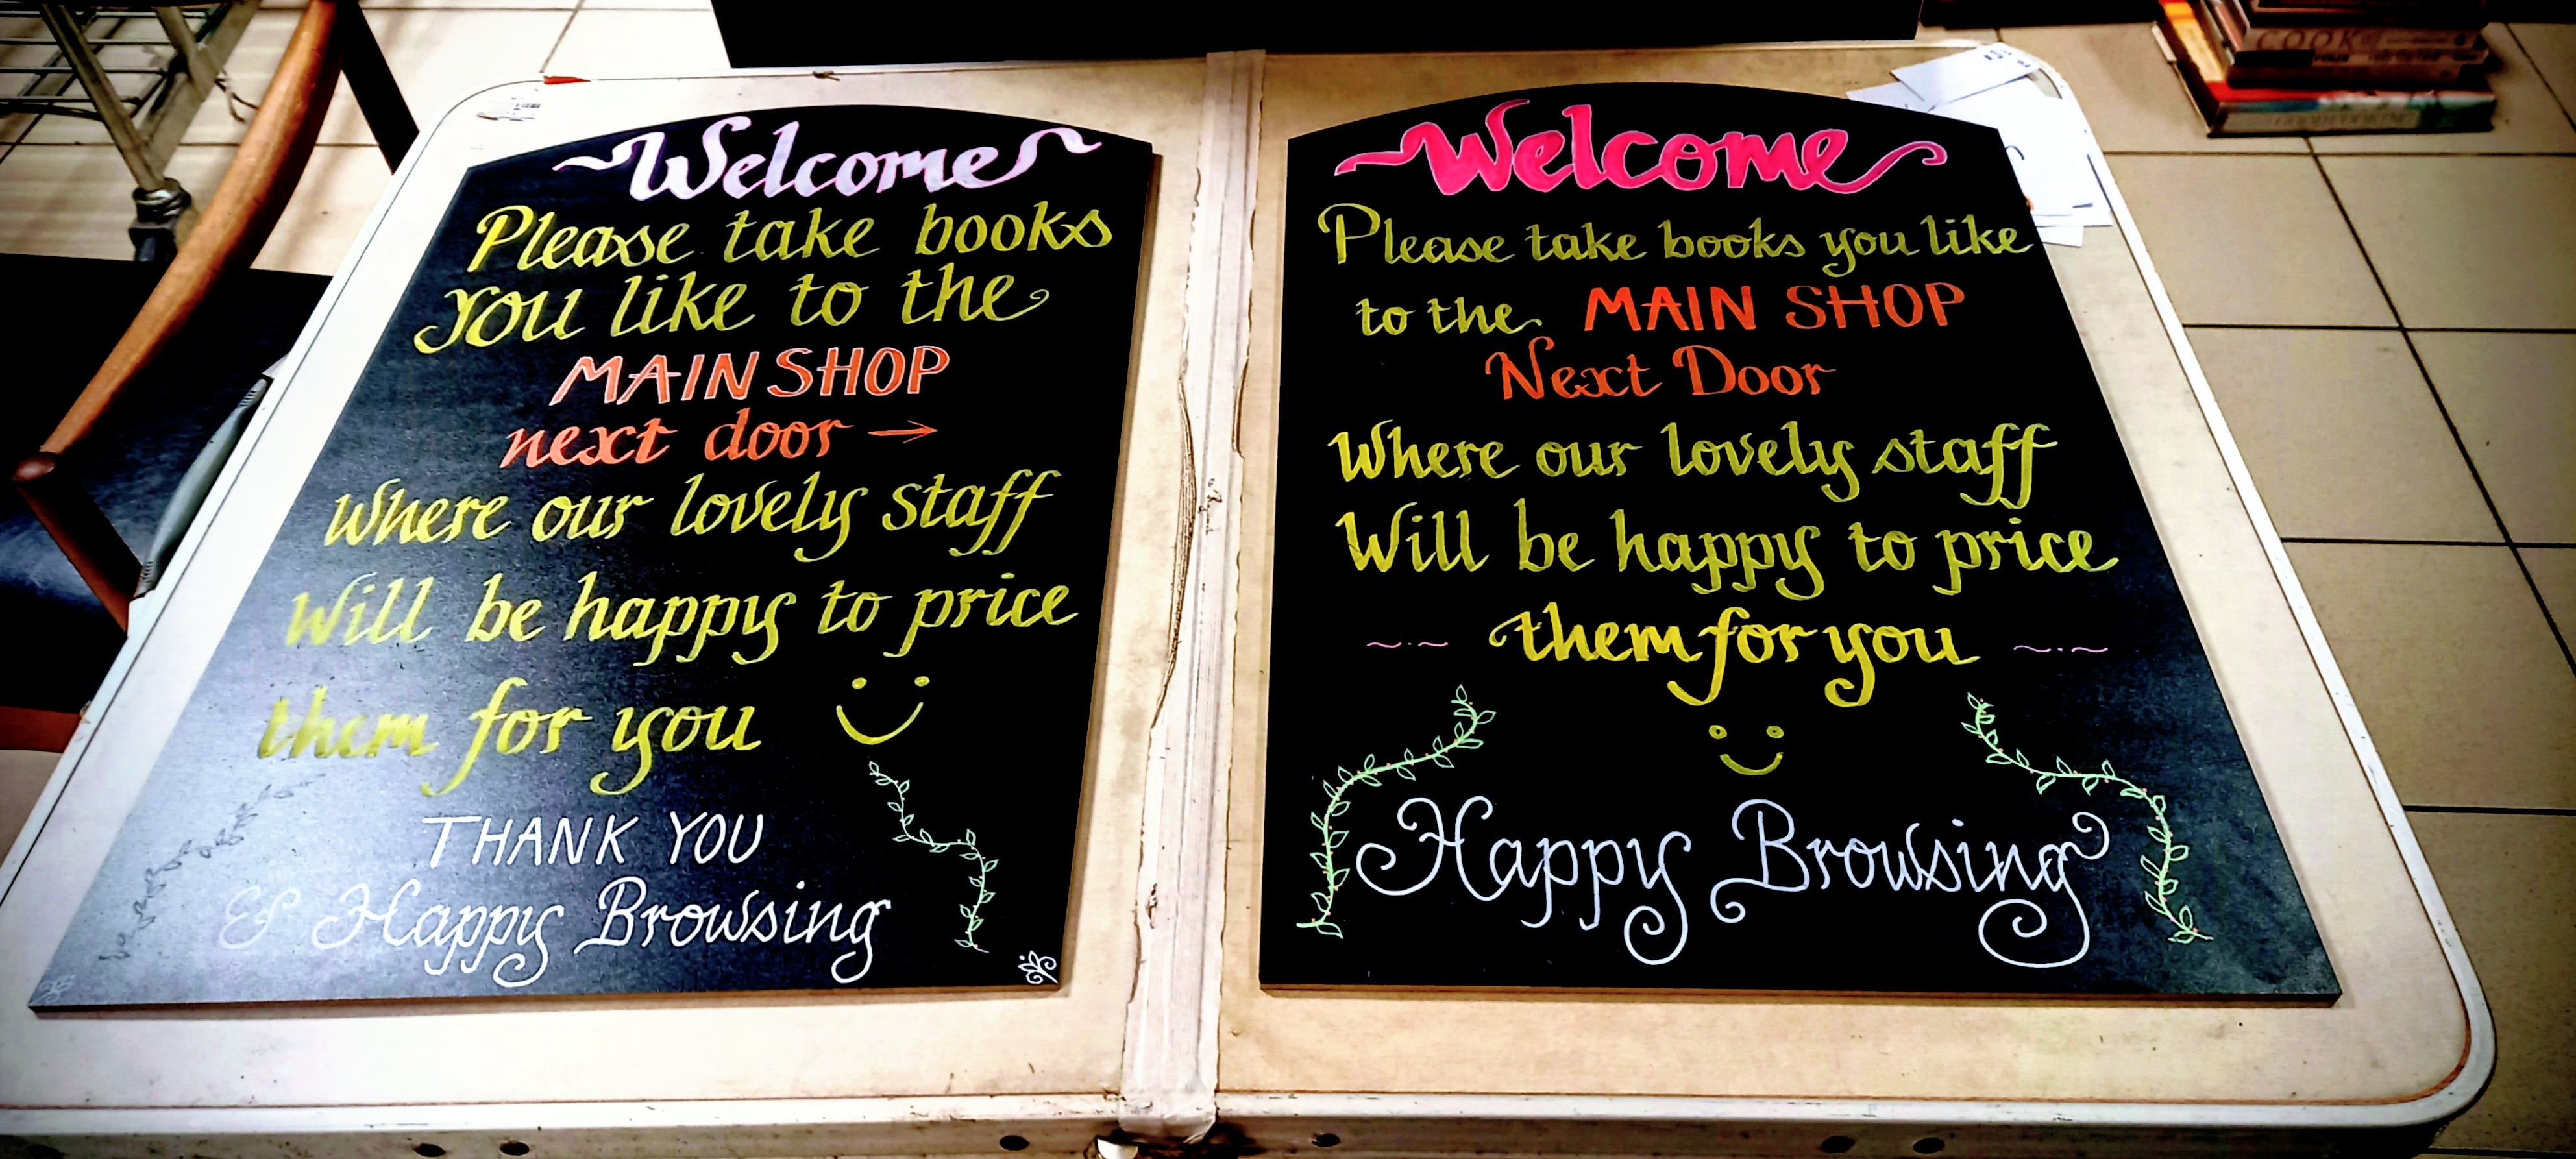 Welcome
Please take books
you like to the
MAIN SHOP
next door →
Where our lovely staff
Will be happy to price
them for you
THANK YOU
& Happy Browsing
Welcome
Please take books you like
to the MAIN SHOP
Next Door
Where our lovely staff
Will be happy to price
them for you
Happy Browsing
COOK